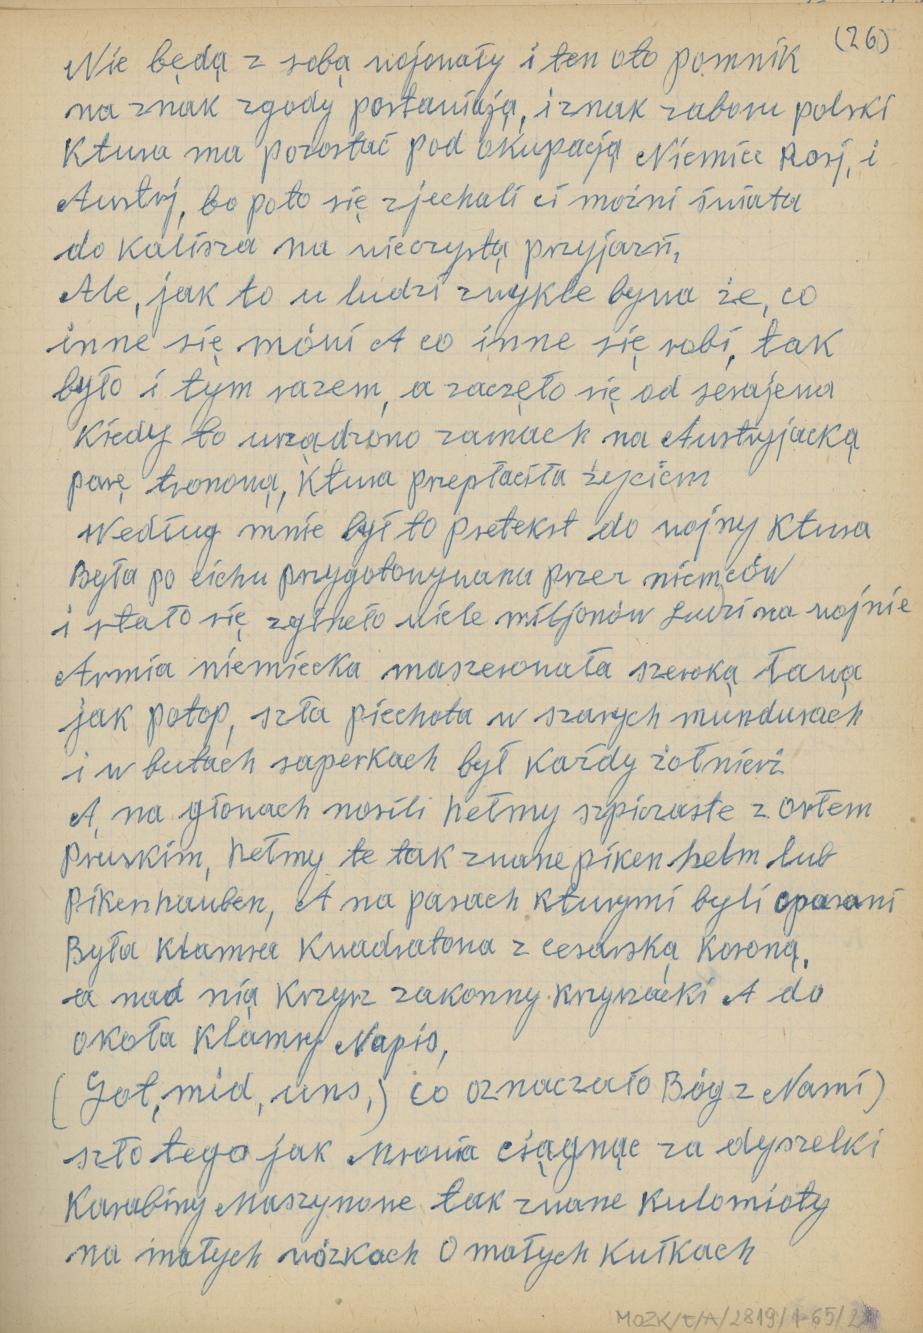 (26)
Nie będą z sobą wojowały i ten oto pomnik
na znak zgody postawiają, i znak zaboru polski
Ktura ma pozostać pod okupacją Niemiec Rosj, i
Austrj, bo poto się zjechali ci możni świata
do Kalisza na wieczystą przyjazń,
Ale, jak to u ludzi zwykle bywa że, co
inne się mówi A co inne się robi, tak
było i tym razem, a zaczęło się od serajewa
Kiedy to urządzono zamach na Austryjacką
parę tronową, Ktura przepłaciła życiem
Według mnie był to pretekst do wojny Ktura
Była po cichu przygotowywana przez niemców
i stało się zgłneło wiele miljonów Ludzi na wojnie
Armia niemiecka maszerowała szeroką ławą
jak potop, szła piechota w szarych mundurach
i w butach saperkach był każdy żołnierz
A, na głowach nosili hełmy szpiczaste z orłem
Pruskim, hełmy te tak znane piken helm lub
Pikenhauben, A na pasach kturymi byli opasani
Była klamra Kwadratowa z cesarską Koroną,
a nad nią Krzyrz zakonny krzyrzacki A do
okoła Klamry Napis,
(Got, mid, uns,) co oznaczało Bóg z Nami)
szło tego jak Mrowia ciągnąc za dyszelki
Karabiny Maszynowe tak znane Kulomioty
na małych wózkach O małych Kułkach
MOZK/t/A/2819/1-65/2